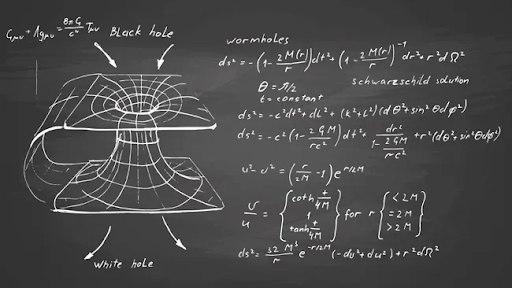 Gμν + Λgμν = 8πG/c⁴ Tμν
Black hole
white hole
wormholes
ds² = -(1 - 2M(r)/r)dt² + (1 - 2M(r)/r)⁻¹ dr² + r²dΩ²
Schwarzschild solution
θ = π/2
t = constant
ds² = -c²dt² + dL² + (k² + L²)(dθ² + sin²θdφ²)
ds² = -c²(1 - 2GM/rc²)dt² + dr²/(1 - 2GM/rc²) + r²(dθ² + sin²θdφ²)
u² - v² = (r/2M - 1)e^(r/2M)
v/u = {coth t/4M, 1, tanh t/4M} for r {< 2M, = 2M, > 2M}
ds² = 32M³/r e^(-r/2M) (-dv² + du²) + r²dΩ²